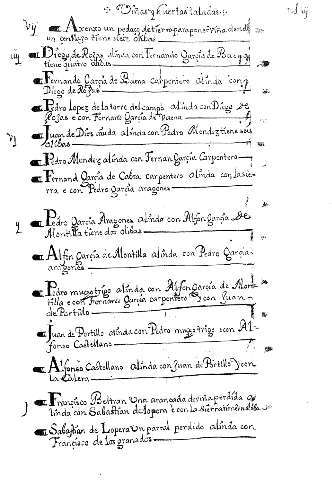 Viñas y huertas taladas
vij A orenzo un pedaço de tierra para poner viña donde
un centiago tiene siete olibas
iiij Diego de Rojas alinda con Fernando García de Baena
tiene quatro olibas
Fernando García de Baena carpentero alinda con
Diego de Rojas
Pedro Lopez de la torre del campo alinda con Diego de
Rojas e con Fernando García de Baena
vj Juan de Dios alinda con Pedro Mendez tiene seis
olibas
Pedro Mendez alinda con Fernan García Carpentero
Fernand García de Cabra carpentero alinda con la sie-
rra e con Pedro García aragones
ij Pedro García Aragones alinda con Alfón García de
Montilla tiene dos olibas
Alfón García de Montilla alinda con Pedro García
aragones
Pedro mugotrigo alinda con Alfón García de Mon-
tilla e con Fernando García carpentero y con Juan
de Portillo
Juan de Portillo alinda con Pedro mugotrigo e con Al-
fonso Castellano
Alfonso Castellano alinda con Juan de Portillo y con
la Calera
j Francisco Beltran una arancada de viña perdida a-
linda con Sabastian de Lopera e con la sierra tiene
Sabastian de Lopera un parral perdido alinda con
Francisco de los granados